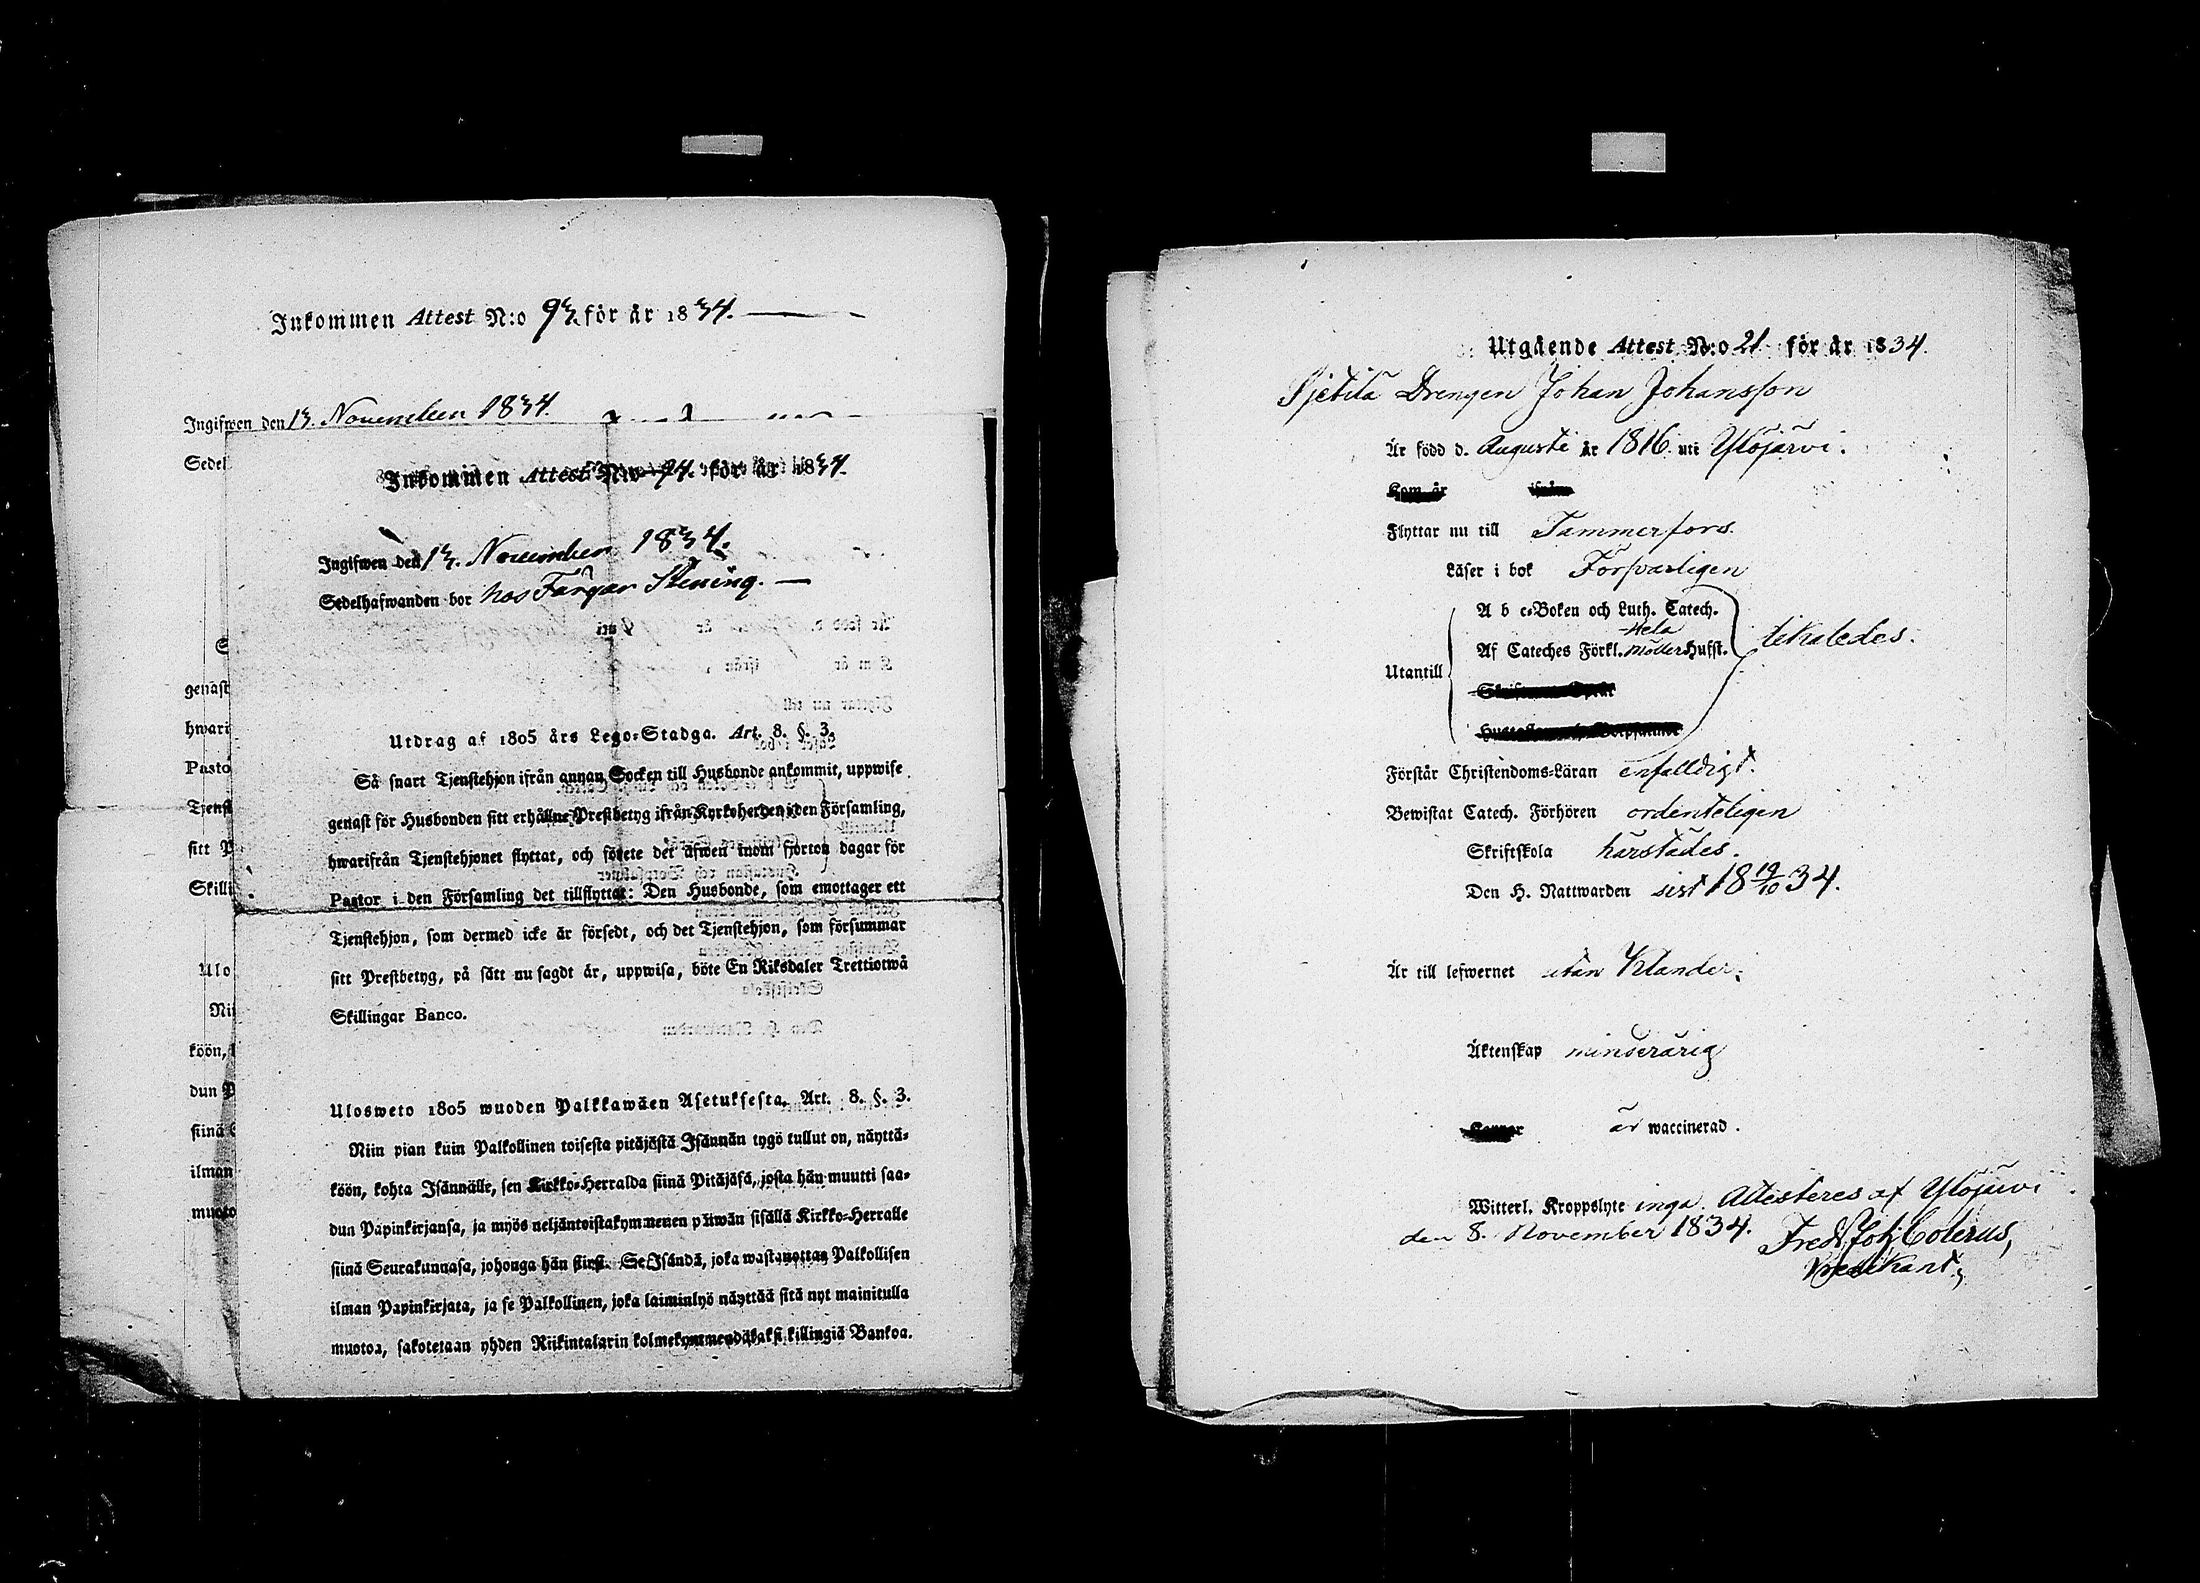 Inkommen Attest N:o 93 för år 1834.
Ingifwen den 13. November 1834.
Sedel
genast
hwari
Pasto
Tjenst
sitt P
Skilli
Ulo
Nii
köön,
dun P
siinä
ilman
muoto
Inkommen Attest N:o 94. för år 1834.
Ingifwen den 13. November 1834.
Sedelhafwanden bor hos Färgar Stening.
Utdrag af 1805 års Lego-Stadga. Art. 8. §. 3.
Så snart Tjenstehjon ifrån annan Socken till Husbonde ankommit, uppwise
genast för Husbonden sitt erhållne Prestbetyg ifrån Kyrkoherden i den Församling,
hwarifrån Tjenstehjonet flyttat, och förete det äfwen inom fjorton dagar för
Pastor i den Församling det tillflyttat: Den Husbonde, som emottager ett
Tjenstehjon, som dermed icke är försedt, och det Tjenstehjon, som försummar
sitt Prestbetyg, på sätt nu sagdt är, uppwisa, böte En Riksdaler Trettiotwå
Skillingar Banco.
Ulosweto 1805 wuoden Palkkawäen Asetuksesta. Art. 8. §. 3.
Niin pian kuin Palkollinen toisesta pitäjästä Isännän tygö tullut on, näyttä-
köön, kohta Isännälle, sen Kirkko-Herralda siinä Pitäjäsä, josta hän muutti saa-
dun Papinkirjansa, ja myös neljäntoistakymmenen päiwän sisällä Kirkko-Herralle
siinä Seurakunnasa, johonga hän siirsi. Se Isändä, joka wastanottaa Palkollisen
ilman Papinkirjata, ja se Palkollinen, joka laiminlyö näyttää sitä nyt mainitulla
muotoa, sakotetaan yhden Riikintalarin kolmekymmendäkaksi killingiä Bankoa.
Utgående Attest N:o 21 för år 1834.
Pjetilä Drengen Johan Johansson
Är född d. Augusti år 1816 uti Ylöjärvi.
Kom år ifrån
Flyttar nu till Tammerfors.
Läser i bok Försvarligen
A b c-Boken och Luth. Catech.
Hela
Af Cateches Förkl. Möller Hufst. likaledes.
Utantill
Förstår Christendoms-Läran enfalldigt.
Bewistat Catech. Förhören ordenteligen
Skriftskola härstädes.
Den H. Nattwarden sist 18 19/10 34.
Är till lefwernet utan Klander.
Äktenskap minderårig
är waccinerad.
Witterl. Kroppslyte inga. Attesteres af Ylöjärvi
den 8. November 1834. Fredr. Joh. Colerus,
Predikant.